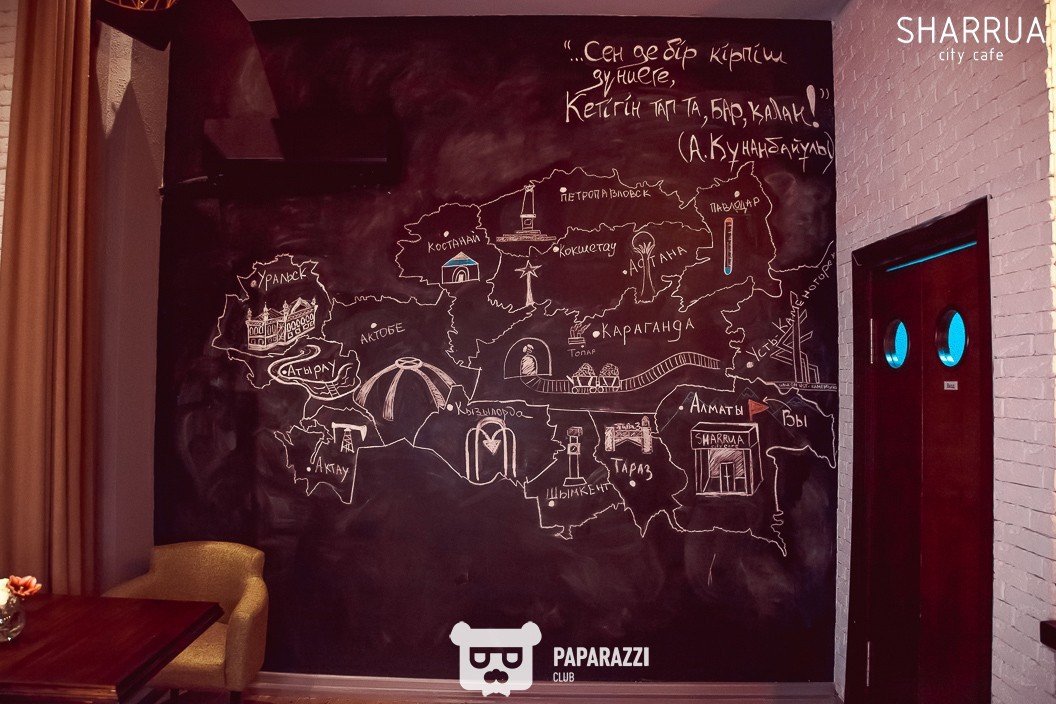 SHARRUA
city cafe
"...Сен де бір кірпіш
дүниеге,
Кетігін тап та, бар, қалан!"
(А. Құнанбайұлы)
Петропавловск
Павлодар
Костанай
Кокшетау
Астана
Уральск
Актобе
Караганда
Топар
Усть-Каменогорск
Атырау
Кызылорда
Алматы
Вы
SHARRUA
Тараз
Тараз
Актау
Шымкент
PAPARAZZI
CLUB